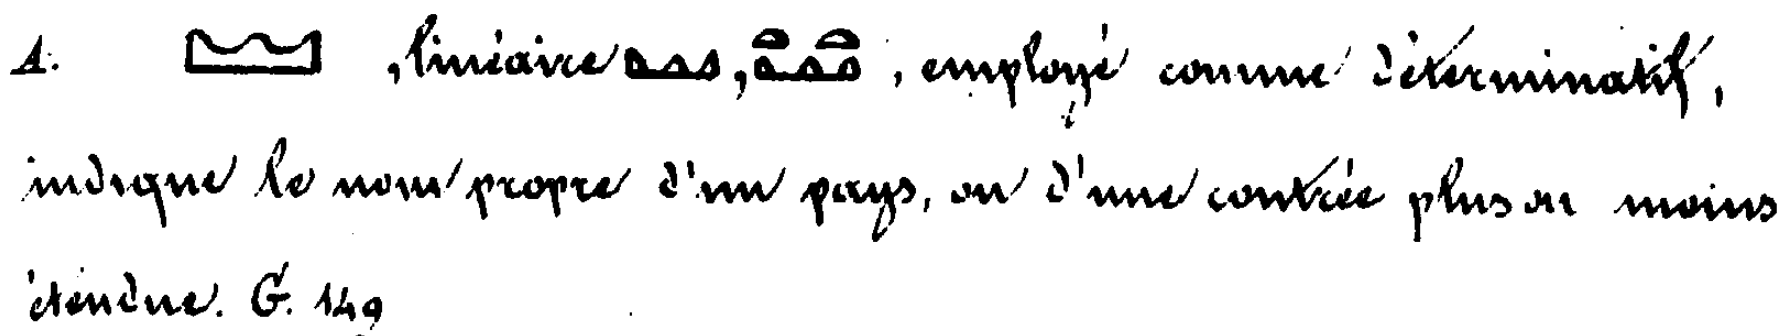 1. 𓈉, linéaire 𓈉, 𓈉, employé comme déterminatif,
indique le nom propre d'un pays, ou d'une contrée plus ou moins
étendue. G. 149